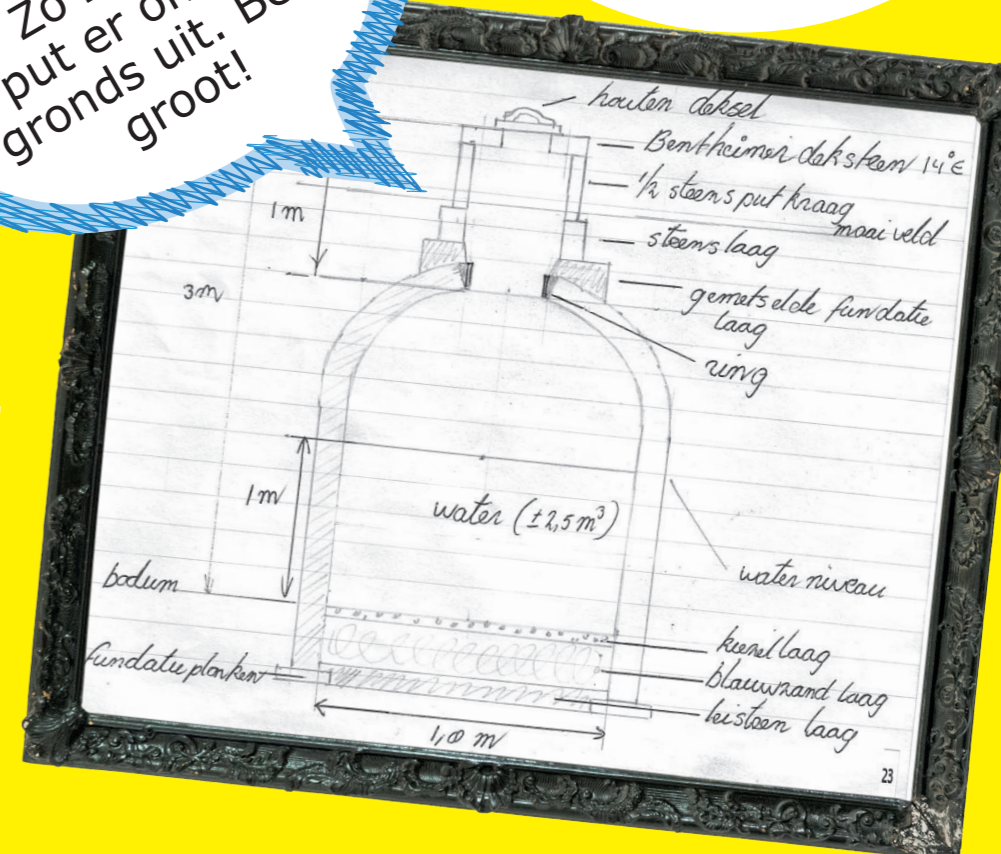 Zo
put er on
gronds uit. Be
groot!
houten deksel
Bentheimer deksteen 14°E
½ steens put kraag
maaiveld
steenslaag
1m
3m
gemetselde fundatie
laag
ring
1m
water (±2,5 m³)
water niveau
bodum
kiezel laag
fundatie planken
blauwzand laag
leisteen laag
1,8 m
23